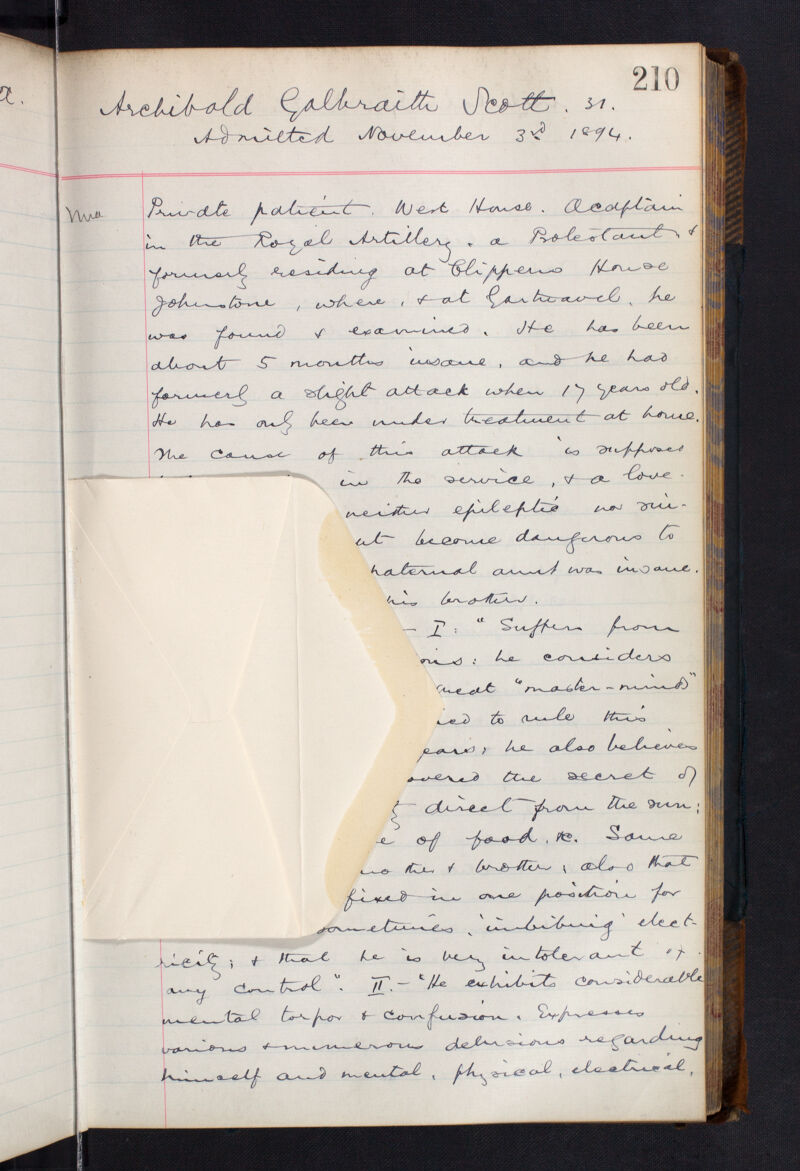 210
Archibald Galbraith Scott. 31.
Admitted November 3rd 1894.
Private patient. West House. A captain
in the Royal Artillery. a Protestant, &
formerly residing at Clippens House
Johnstone, where, & at Gartnavel, he
was found & examined. He has been
about 5 months insane, and he had
formerly a slight attack when 17 years old.
He has only been under treatment at home.
The cause of this attack is supposed
in the service, & a love-
neither epileptic nor sui-
but become dangerous to
paternal aunt was insane.
his brother.
- I: "Suffers from
he considers
great "master-minds"
to rule this
years; he also believes
the secret of
direct from the sun;
of food, &c. Same
mother & brother, also that
fixed in one position for
sometimes, 'imbibing' elect-
ricity; & that he is very intolerant of
any control". II. - "He exhibits considerable
mental torpor & confusion. Expresses
various & numerous delusions regarding
himself and mental, physical, electrical,